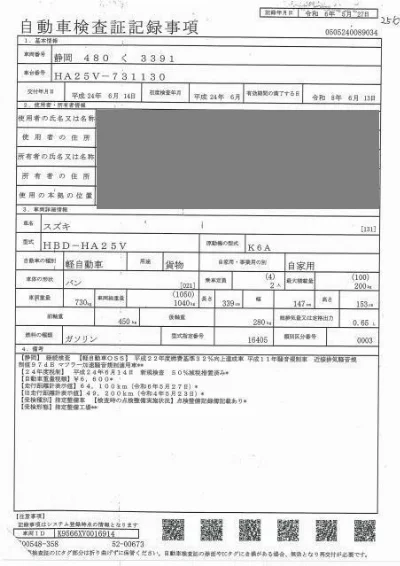 自動車検査証記録事項
記録年月日 令和 6年 5月 27日
0505240089034
1. 基本情報
車両番号 静岡 480 く 3391
車台番号 HA25V-731130
交付年月日 平成 24年 6月 14日 初度検査年月 平成 24年 6月 有効期間の満了する日 令和 8年 6月 13日
2. 使用者・所有者情報
使用者の氏名又は名称
使用者の住所
所有者の氏名又は名称
所有者の住所
使用の本拠の位置
3. 車両詳細情報
車名 スズキ [131]
型式 HBD-HA25V 原動機の型式 K6A
自動車の種別 軽自動車 用途 貨物 自家用・事業用の別 自家用
車体の形状 バン [021] 乗車定員 (4) 2人 最大積載量 (100) 200kg
車両重量 730kg 車両総重量 (1050) 1040kg 長さ 339cm 幅 147cm 高さ 153cm
前軸重 450kg 後軸重 280kg 総排気量又は定格出力 0.65L
燃料の種類 ガソリン 型式指定番号 16405 類別区分番号 0003
4. 備考
【静岡】 継続検査 【軽自動車OSS】 平成22年度燃費基準32%向上達成車 平成11年騒音規制車 近接排気騒音規
制値97dB マフラー加速騒音規制適用車**
【24年度税制】 平成24年6月14日 新規検査 50%減税措置済み*
【自動車重量税額】 ¥6,600*
【走行距離計表示値】 64,100km (令和6年5月27日)*
【旧走行距離計表示値】 49,200km (令和4年5月23日)*
【受検種別】 指定整備車 【検査時の点検整備実施状況】 点検整備記録簿記載あり*
【受検形態】 指定整備工場**
【注意事項】
記録事項はシステム登録時点の情報となります
車両ID K9566XV0016914
000548-358 52-00673